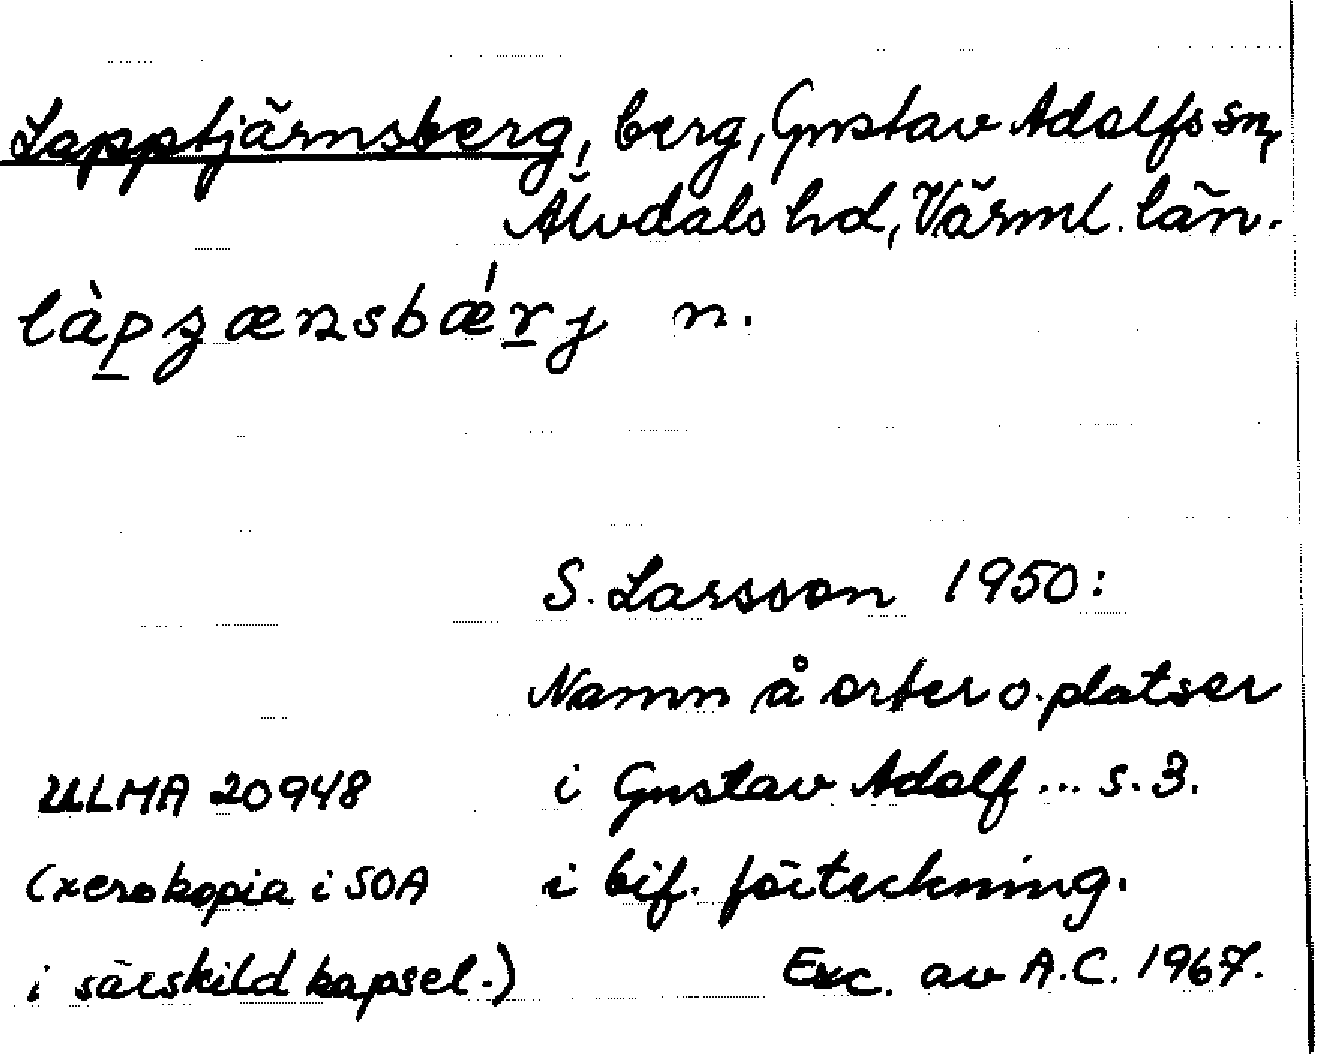 Lapptjärnsberg, berg, Gustav Adolfs sn,
Älvdals hd, Värml. län.
làpʒænsbǽrj n.
S. Larsson 1950:
Namn å orter o. platser
ULMA 20948 i Gustav Adolf ... s. 3.
(xerokopia i SOA i bif. förteckning.
i särskild kapsel.) Exc. av A.C. 1967.